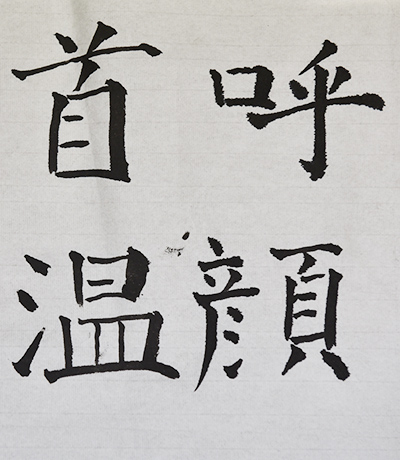 首呼
温顔